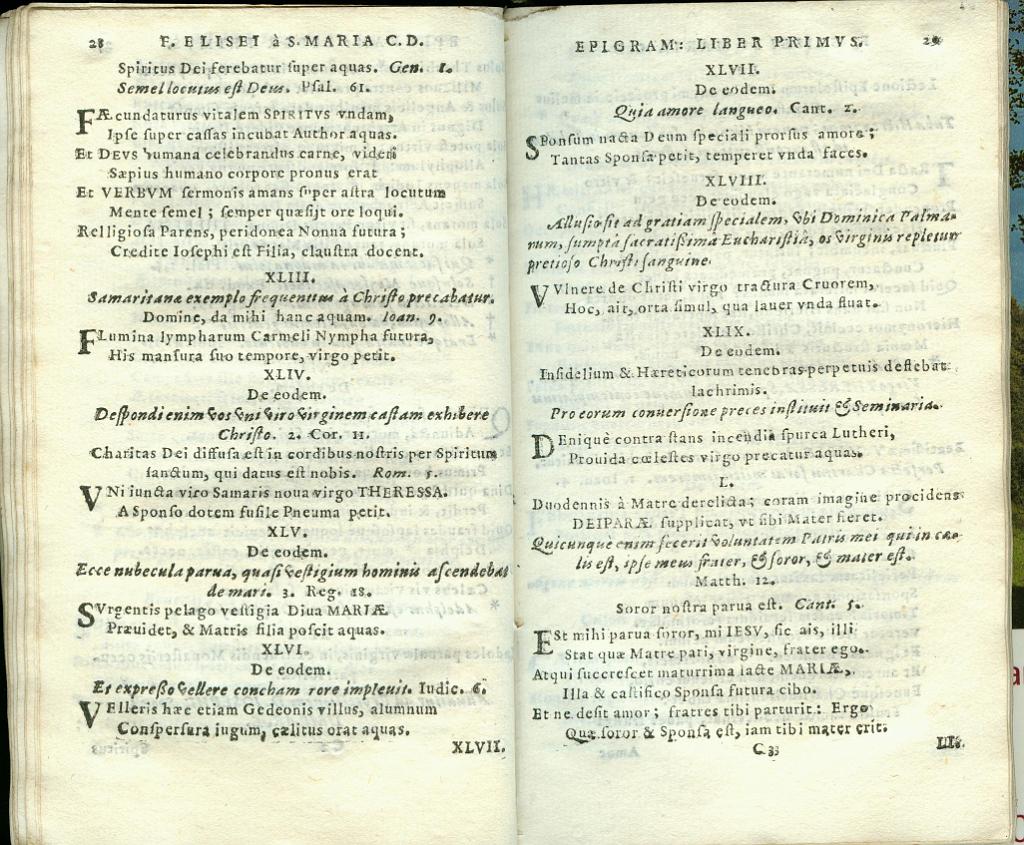 28 F. ELISEI à S. MARIA C. D.
Spiritus Dei ferebatur super aquas. Gen. 1.
Semel locutus est Deus. Psal. 61.
FÆcundaturus vitalem SPIRITVS vndam,
Ipse super cassas incubat Author aquas.
Et DEVS humana celebrandus carne, videri
Sæpius humano corpore pronus erat
Et VERBVM sermonis amans super astra locutum
Mente semel; semper quæsijt ore loqui.
Relligiosa Parens, peridonea Nonna futura;
Credite Iosephi est Filia, claustra docent.
XLIII.
Samaritanæ exemplo frequentius à Christo precabatur.
Domine, da mihi hanc aquam. Ioan. 9.
FLumina lympharum Carmeli Nympha futura,
His mansura suo tempore, virgo petit.
XLIV.
De eodem.
Despondi enim vos vni viro virginem castam exhibere
Christo. 2. Cor. 11.
Charitas Dei diffusa est in cordibus nostris per Spiritum
sanctum, qui datus est nobis. Rom. 5.
VNi iuncta viro Samaris noua virgo THERESSA.
A Sponso dotem fusile Pneuma petit.
XLV.
De eodem.
Ecce nubecula parua, quasi vestigium hominis ascendebat
de mari. 3. Reg. 18.
SVrgentis pelago vestigia Diua MARIÆ
Præuidet, & Matris filia poscit aquas.
XLVI.
De eodem.
Et expresso vellere concham rore impleuit. Iudic. 6.
VElleris hæc etiam Gedeonis villus, alumnum
Conspersura iugum, cælitus orat aquas.
XLVII.
EPIGRAM: LIBER PRIMVS. 29
XLVII.
De eodem.
Quia amore langueo. Cant. 2.
SPonsum nacta Deum speciali prorsus amore;
Tantas Sponsa petit, temperet vnda faces.
XLVIII.
De eodem.
Allusio sit ad gratiam specialem, vbi Dominica Palma-
rum, sumptâ sacratissimâ Eucharistiâ, os virginis repletur
pretioso Christi sanguine.
VVlnere de Christi virgo tractura Cruorem,
Hoc, ait, orta simul, qua lauer vnda fluat.
XLIX.
De eodem.
Infidelium & Hæreticorum tenebras perpetuis deflebat
lachrimis.
Pro eorum conuersione preces instituit & Seminaria.
DEniquè contra stans incendia spurca Lutheri,
Prouida cœlestes virgo precatur aquas.
L.
Duodennis à Matre derelicta; coram imagine procidens
DEIPARÆ supplicat, vt sibi Mater fieret.
Quicunquè enim fecerit voluntatem Patris mei qui in cœ-
lis est, ipse meus frater, & soror, & mater est.
Matth. 12.
Soror nostra parua est. Cant. 5.
ESt mihi parua soror, mi IESV, sic ais, illi
Stat quæ Matre pati, virgine, frater ego.
Atqui succrescet maturrima lacte MARIÆ,
Illa & castifico Sponsa futura cibo.
Et ne desit amor; fratres tibi parturit: Ergo
Quæ soror & Sponsa est, iam tibi mater erit.
C 33 LIs.